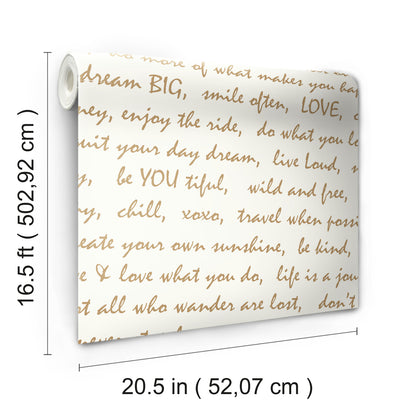 do more of what makes you hap
dream BIG, smile often, LOVE,
ney, enjoy the ride, do what you lo
uit your day dream, live Loud,
be YOU tiful, wild and free,
y, chill, xoxo, travel when possi
eate your own sunshine, be kind,
e & love what you do, life is a jou
t all who wander are lost, don't
16.5 ft ( 502,92 cm )
20.5 in ( 52,07 cm )